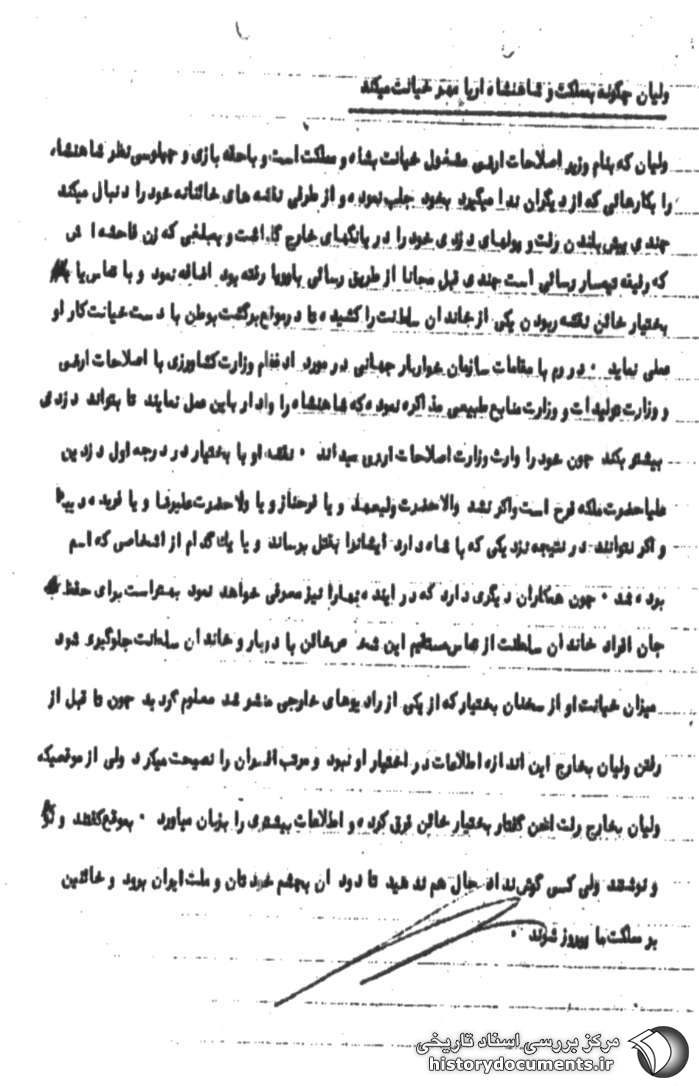 ولیان چگونه بمملکت و شاهنشاه اریا مهر خیانت میکند
ولیان که بنام وزیر اصلاحات ارضی مشغول خیانت بشاه و مملکت است و با حقه بازی و چاپلوسی نظر شاهنشاه
را بکارهائی که از دیگران ندا میگیرد بخود جلب نموده و از طرفی نقشه های خائنانه خود را دنبال میکند
چندی پیش بلندن رفت و پولهای دزدی خود را در بانکهای خارج گذاشت و بمبلغی که زن فاحشه اش
که رفیقه تیمسار رسائی است چندی قبل مجانا از طریق رسائی باروپا رفته بود اضافه نمود و با تماس با
بختیار خائن نقشه ربودن یکی از خاندان سلطنت را کشیده تا در موقع برگشت بوطن با دست خیانت کار او
عملی نماید ۰ در رم با مقامات سازمان خواربار جهانی در مورد ادغام وزارت کشاورزی با اصلاحات ارضی
و وزارت تولیدات و وزارت منابع طبیعی مذاکره نموده که شاهنشاه را وادار باین عمل نمایند تا بتواند دزدی
بیشتر بکند چون خود را وارث وزارت اصلاحات ارضی میداند ۰ نقشه او با بختیار در درجه اول دزدین
علیاحضرت ملکه فرح است واگر نشد والاحضرت ولیعهد و یا فرحناز و یا ولاحضرت علیرضا و یا فریده دیبا
و اگر نتوانند در نتیجه نزدیکی که با شاه دارد ایشانرا بقتل برساند و یا یک کدام از اشخاصی که اسم
برده شد ۰ چون همکاران دیگری دارد که در اینده بهارا نیز معرفی خواهد نمود بهتراست برای حفظ
جان افراد خاندان سلطنت از تماس مستقیم این شخص خائن با دربار و خاندان سلطنت جلوگیری شود
میزان خیانت او از سخنان بختیار که از یکی از رادیوهای خارجی منتشر شد معلوم گردید چون تا قبل از
رفتن ولیان بخارج این اندازه اطلاعات در اختیار او نبود و مرتب افسران را نصیحت میکرد ولی از موقعیکه
ولیان بخارج رفت لحن گفتار بختیار خائن فرق کرده و اطلاعات بیشتری را بزبان میاورد ۰ بموقع گفتند و
و نوشتند ولی کسی گوش نداد حال هم ندهید تا دود ان بچشم خودتان و ملت ایران برود و خائنین
بر مملکت ما پیروز شوند ۰
مرکز بررسی اسناد تاریخی
historydocuments.ir